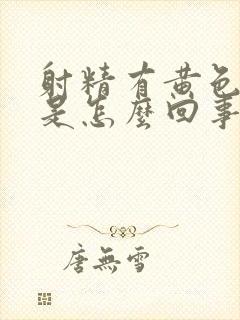 射精有黄色
是怎麼回事
唐無雪